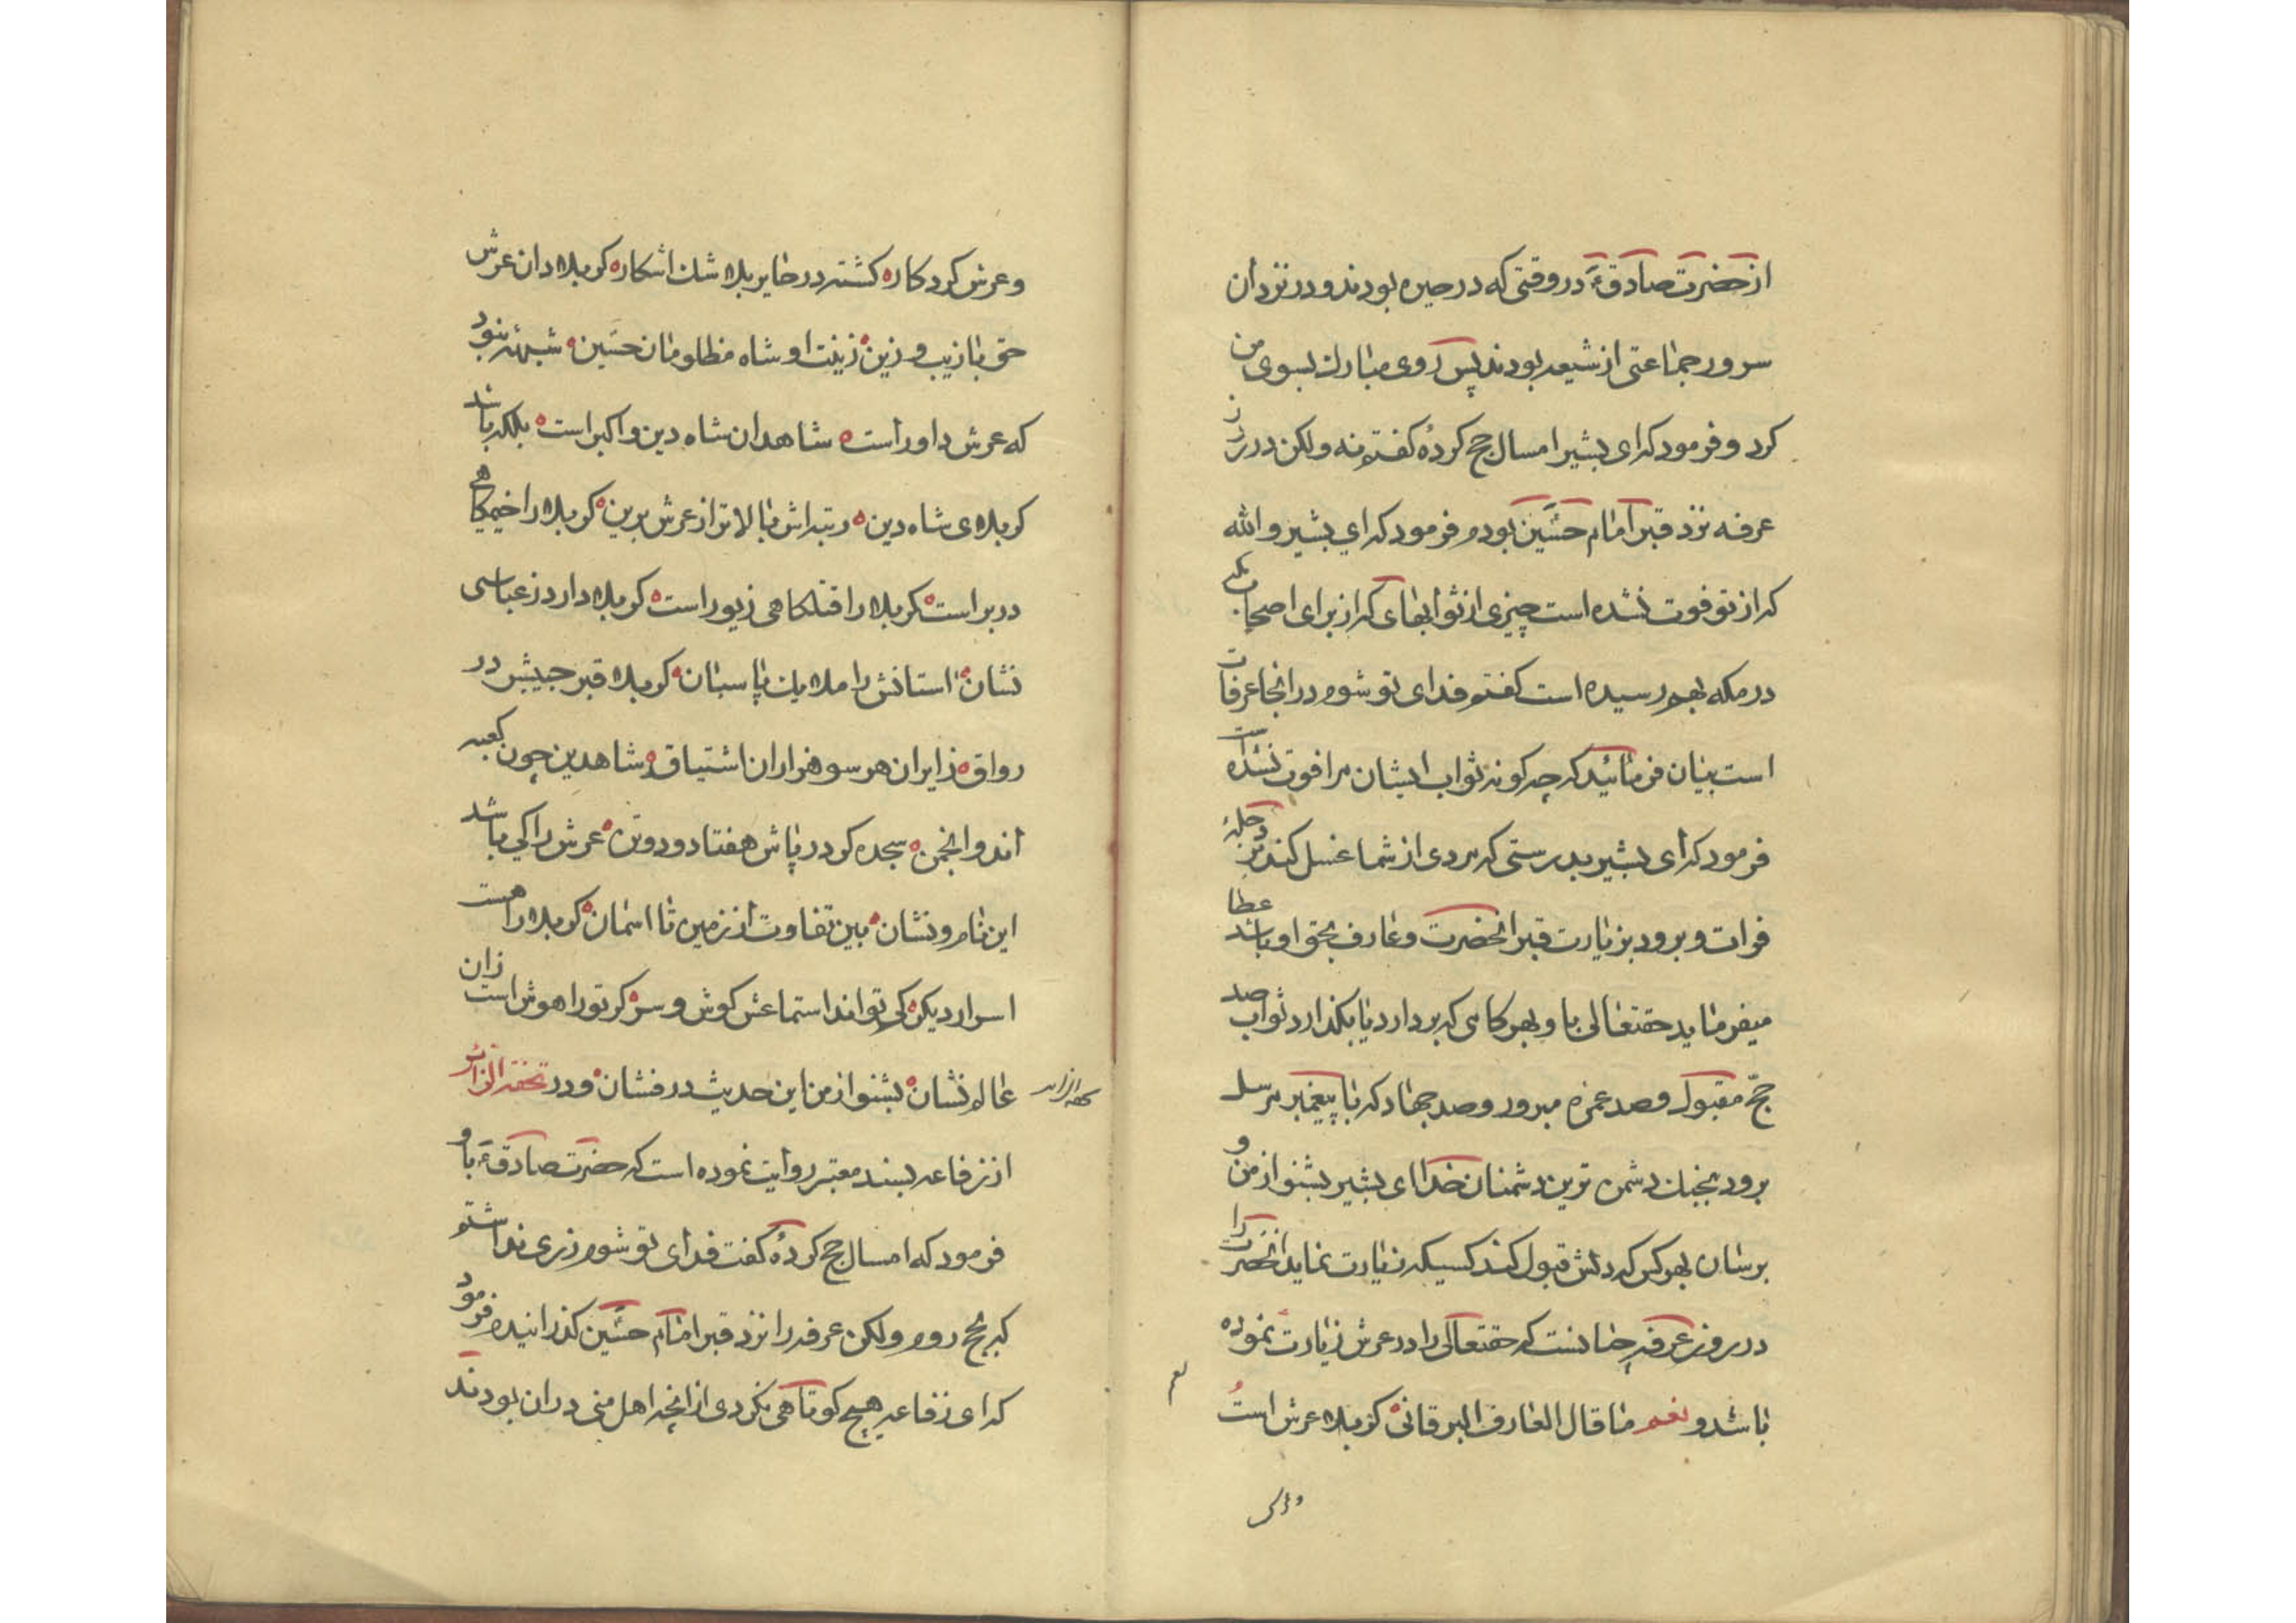 از حضرت صادقؑ در وقتی که در حیره بودند و در نزد ان
سرور جماعتی از شیعه بودند پس روی مبارك بسوی من
کرد و فرمود که ای بشیر امسال حج کردهٔ گفتم نه ولکن در روز
عرفه نزد قبر امام حسین بودم فرمود که ای بشیر والله
که از تو فوت نشده است چیزی از ثوابهای که از برای اصحاب مکه
در مکه بهم رسیده است گفتم فدای تو شوم در انجا عرفات
است بیان فرمائید که چه کونه ثواب ایشان مرا فوت نشده است
فرمود که ای بشیر بدرستی که مردی از شما غسل کند بر دجله
فرات و برود بزیارت قبر انحضرت و عارف بحق او باشد عطا
میفرماید حقتعالی باو بهر کامی که بردارد یا بکذارد ثواب صد
حجّ مقبول و صد عمره مبرور و صد جهاد که با پیغمبر مرسل
برود بجنك دشمن ترین دشمنان خدا ای بشیر بشنو از من و
برسان بهر کس که دلش قبول کند کسیکه زیارت نماید انحضرت را
در روز عرفه چنانست که حقتعالی را در عرش زیارت نموده
باشد و نعم ما قال العارف البرقانی کربلا عرش است
نعم
وعرش
وعرش کردکار کشته در خایر بلا شك اشکاره کربلا دان عرش
حق با زیب و زین زینت او شاه مظلومان حسین شبهٔ نبود
که عرش داور است شاهد ان شاه دین و اکبر است بلکه باشد
کربلای شاه دین رتبه اش بالاتر از عرش برین کربلا را خیمکاهی
در بر است کربلا را قتلکاهی زیور است کربلا دارد ز عباسی
نشان استانش را ملایك پاسبان کربلا قبر حبیبش در
رواق زایران هر سو هزاران اشتیاق شاهدین چون کعبه
اند و انجمن سجده کو در پاش هفتاد و دو تن عرش را کی باشد
این نام و نشان بین تفاوت از زمین تا اسمان کربلا را هست
اسرار دیکر کی تواند استماعش کوش و سر کر تو را هوش است زان
عالم نشان بشنو از من این حدیث در فشان و در تحفه الزائر
تحفه الزائر
از زفاعه بسند معتبر روایت نموده است که حضرت صادقؑ باو
فرمود که امسال حج کردهٔ کفت فدای تو شوم زری نداشتم
که بحج روم ولکن عرفه را نزد قبر امام حسین کذرانیدم فرمود
که ای زفاعه هیچ کوتاهی نکردی از انچه اهل منی در ان بودند